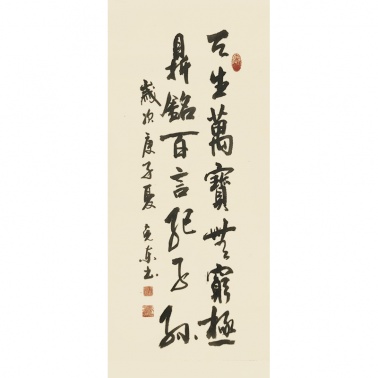 生萬寶無窮極
鼎銘百言紀子孫
歲次庚子夏 書